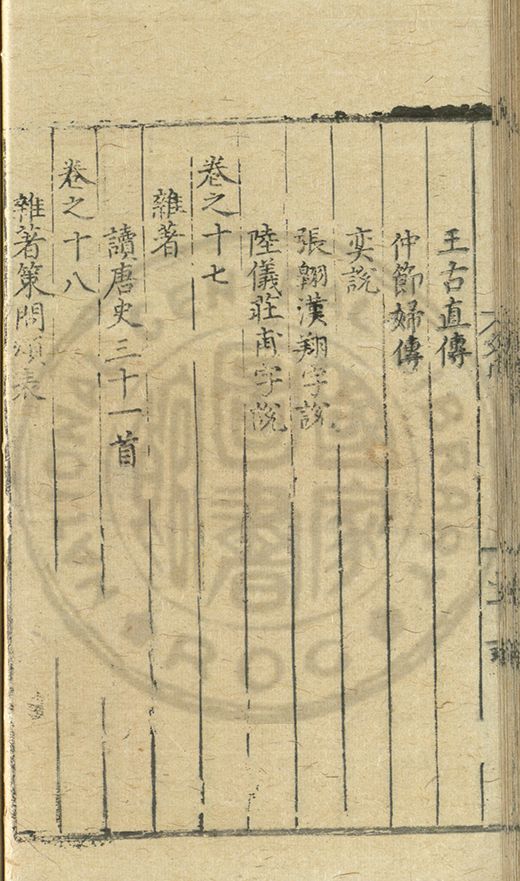 王古直傳
仲節婦傳
奕說
張翱漢翔字說
陸儀莊甫字說
卷之十七
雜著
讀唐史三十一首
卷之十八
雜著策問頌表